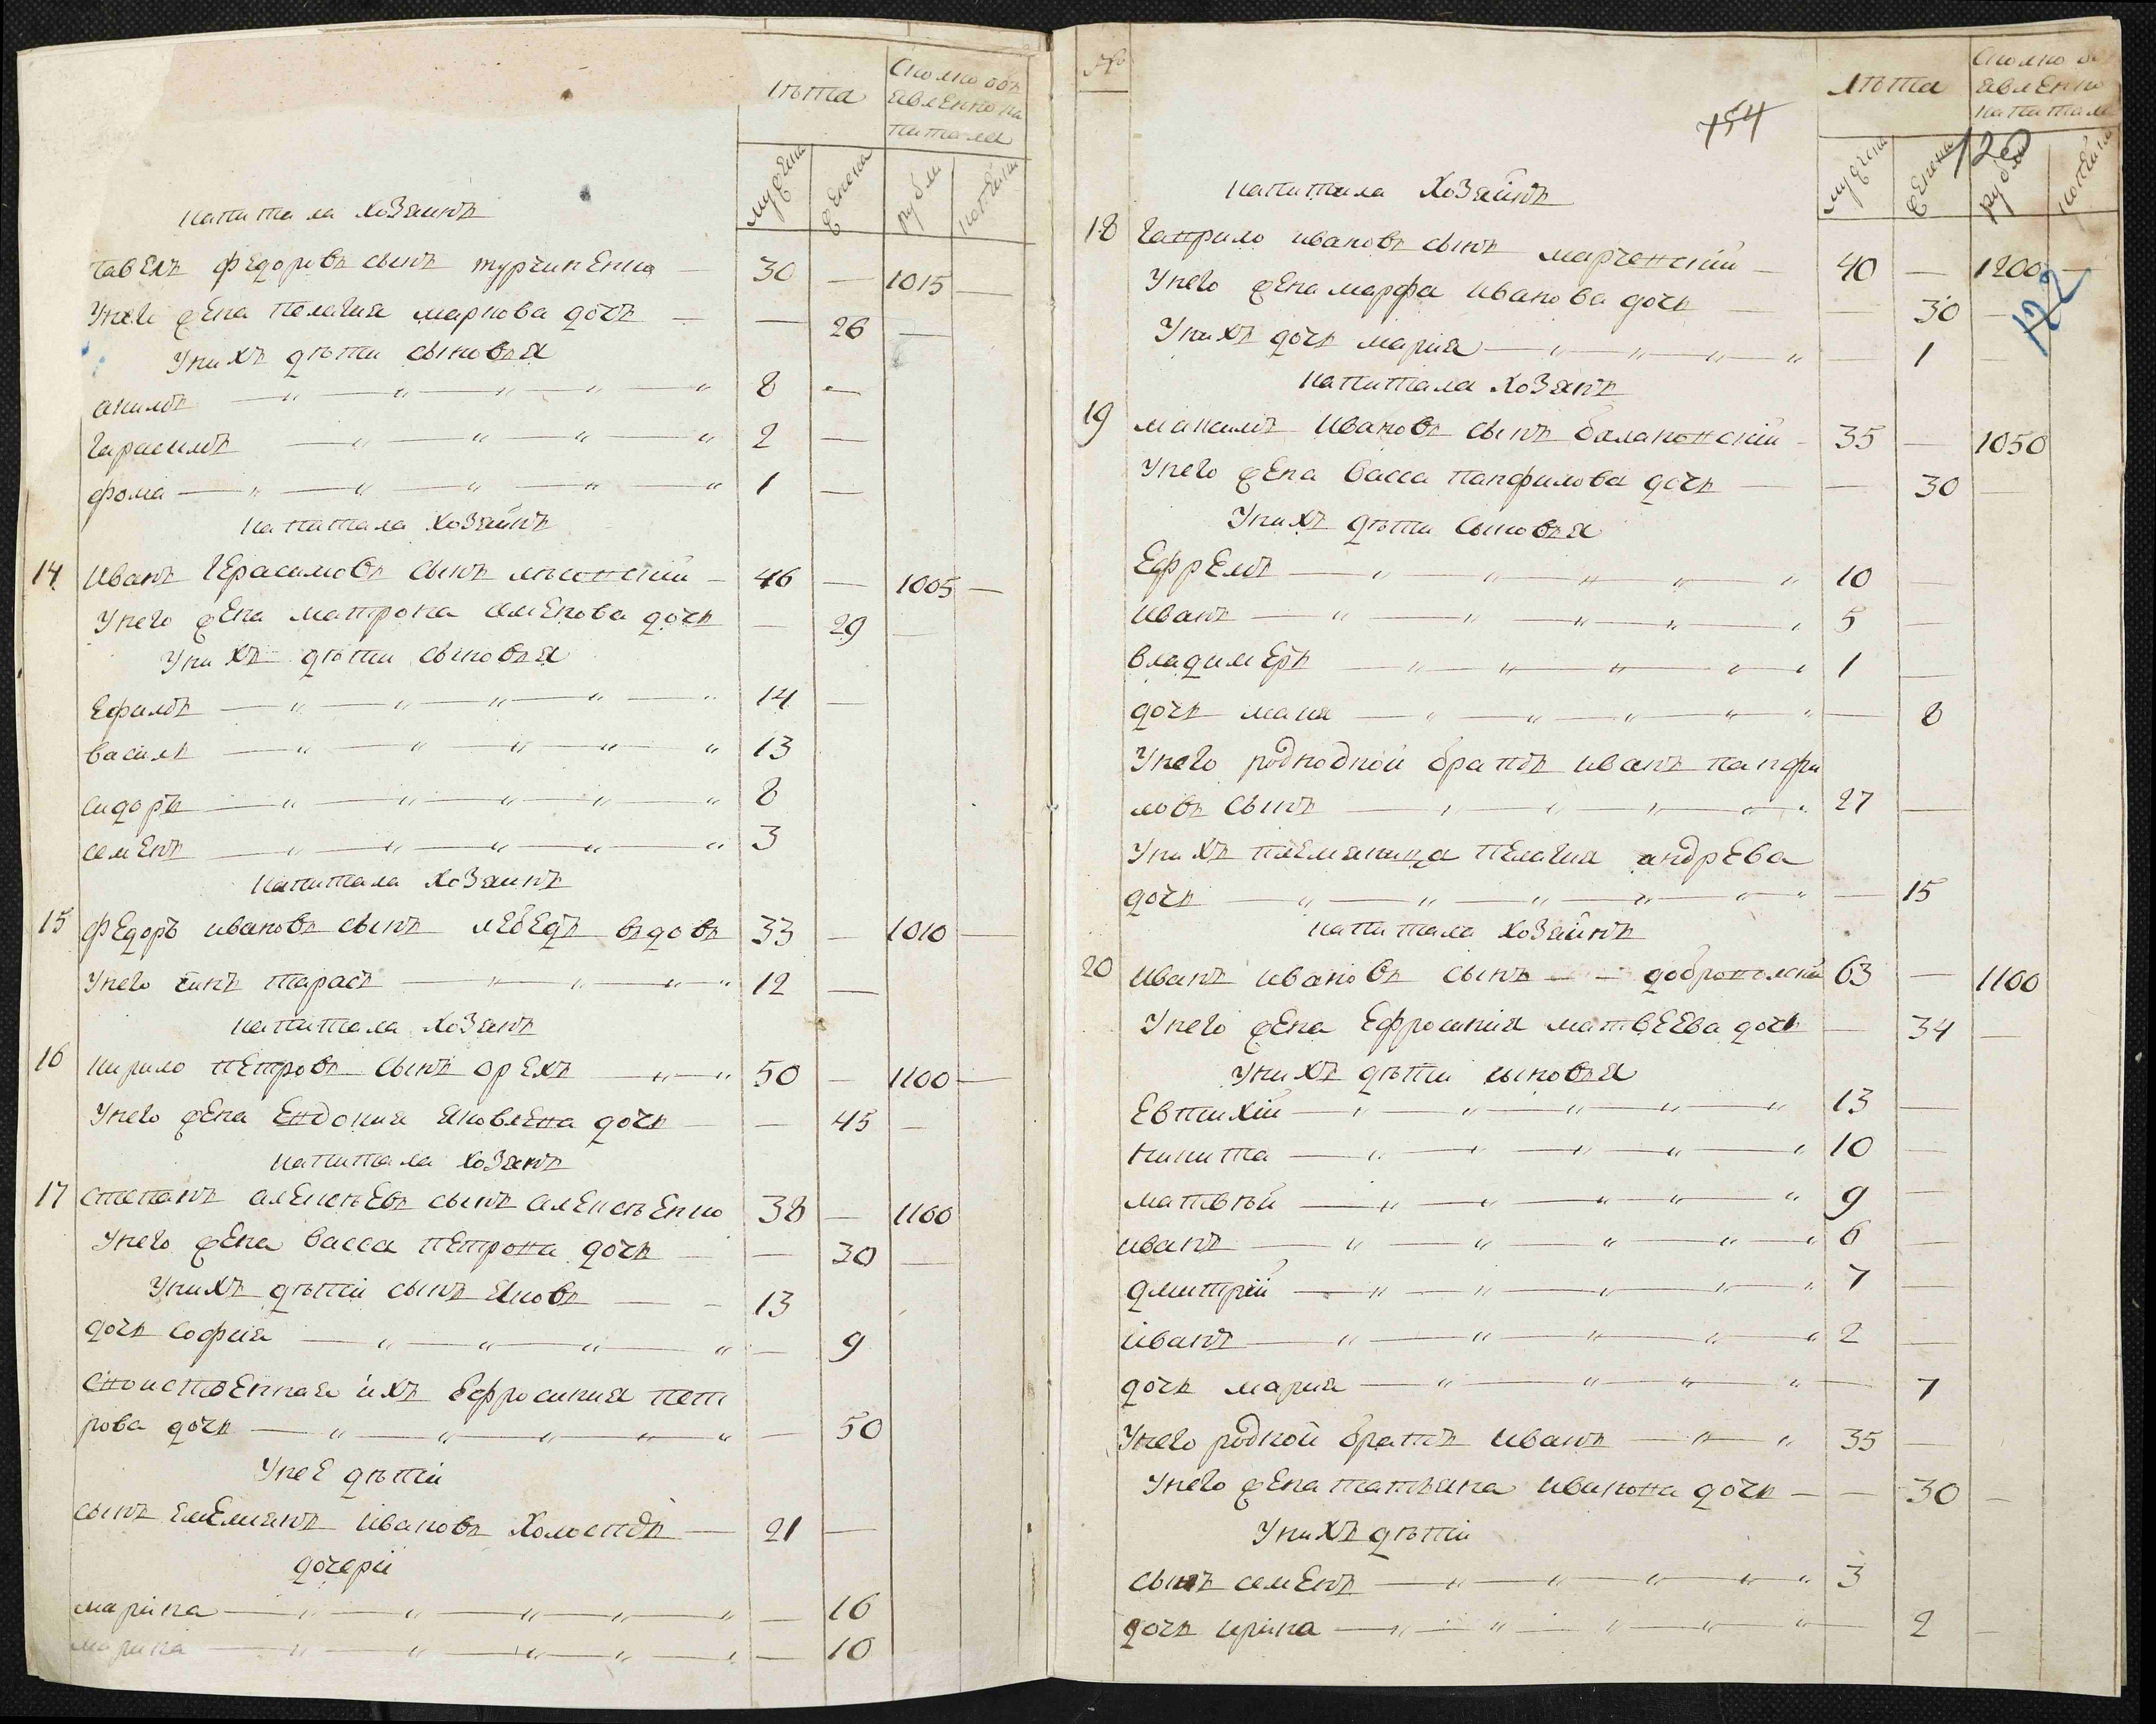 лѣта
Сколко объ
явленно ка
питала
мужеска
женска
рубли
копейки
капитала хозяинъ
павелъ федоровъ сынъ турчиненко — 30 — 1015 —
Унего жена пелагия маркова дочь — — 26 —
Унихъ дѣти сыновья
акимъ — " — " — " — " — " 8 —
Гарасимъ — " — " — " — " 2 —
фома — " — " — " — " — " 1 —
капитала хозяйнъ
14 Иванъ Герасимовъ сынъ лѣсовский — 46 — 1005 —
Унего жена матрона семенова дочь — 29 —
Унихъ дѣти сыновья
Ефимъ — " — " — " — " — " 14 —
василь — " — " — " — " — " 13
сидоръ — " — " — " — " — " 8
семенъ — " — " — " — " — " 3
капитала хозяинъ
15 федоръ ивановъ сынъ лебедь вдовъ 33 — 1010 —
Унего синъ тарасъ — " — " — " — " 12 —
капитала хозянъ
16 кирило петровъ сынъ орехъ — " — " 50 — 1100 —
Унего жена Евдокия яковлева дочь — — 45 —
капитала хозянъ
17 степанъ алексѣевъ сынъ алексѣенко 38 — 1100
Унего жена васса петрова дочь — — 30 —
Унихъ дѣтіи сынъ яковъ — — 13
дочь софия — " — " — " — " — 9
Своиственная ихъ Ефросиния пет
рова дочь — " — " — " — " — " — 50
Унее дѣтіи
сынъ емелиянъ ивановъ холостъ — 21 —
дочеріи
марина — " — " — " — " — " — 16
марина — " — " — " — " — " — 10
№
154
лѣта
Сколко об
явленно
капитала
120
мужеска
женска
рубли
копейки
122
капитала хозяйнъ
18 Гаврило ивановъ сынъ марченский — 40 — 1200 —
Унего жена марфа иванова дочь — — 30 —
Унихъ дочь мария — " — " — " — " 1 —
капитала хозянъ
19 максимъ ивановъ сынъ балановский — 35 — 1050
Унего жена васса панфилова дочь — — 30 —
Унихъ дѣти сыновья
Ефремъ — " — " — " — " — " 10 —
иванъ — " — " — " — " — " 5 —
владимеръ — " — " — " — " — " 1 —
дочь мария — " — " — " — " — " — 8
Унего родной братъ иванъ панфи
ловъ сынъ — " — " — " — " 27 —
Унихъ племяница пелагия андрева
дочь — " — " — " — " — " — 15
капитала хозяйнъ
20 Иванъ ивановъ сынъ — — доброволский 63 — 1100
Унего жена Ефросиния матвеева дочь — 34 —
Унихъ дѣтіи сыновья
Евтихій — " — " — " — " — " 13 —
никита — " — " — " — " — " 10 —
матвѣй — " — " — " — " — " 9 —
иванъ — " — " — " — " — " 6 —
дмитрій — " — " — " — " — " 7 —
иванъ — " — " — " — " — " 2 —
дочь мария — " — " — " — " — 7
Унего родной братъ иванъ — " — " 35 —
Унего жена татьяна иванова дочь — — 30 —
Унихъ дѣтіи
сынъ семенъ — " — " — " — " — " 3
дочь ирина — " — " — " — " — " — 2 —